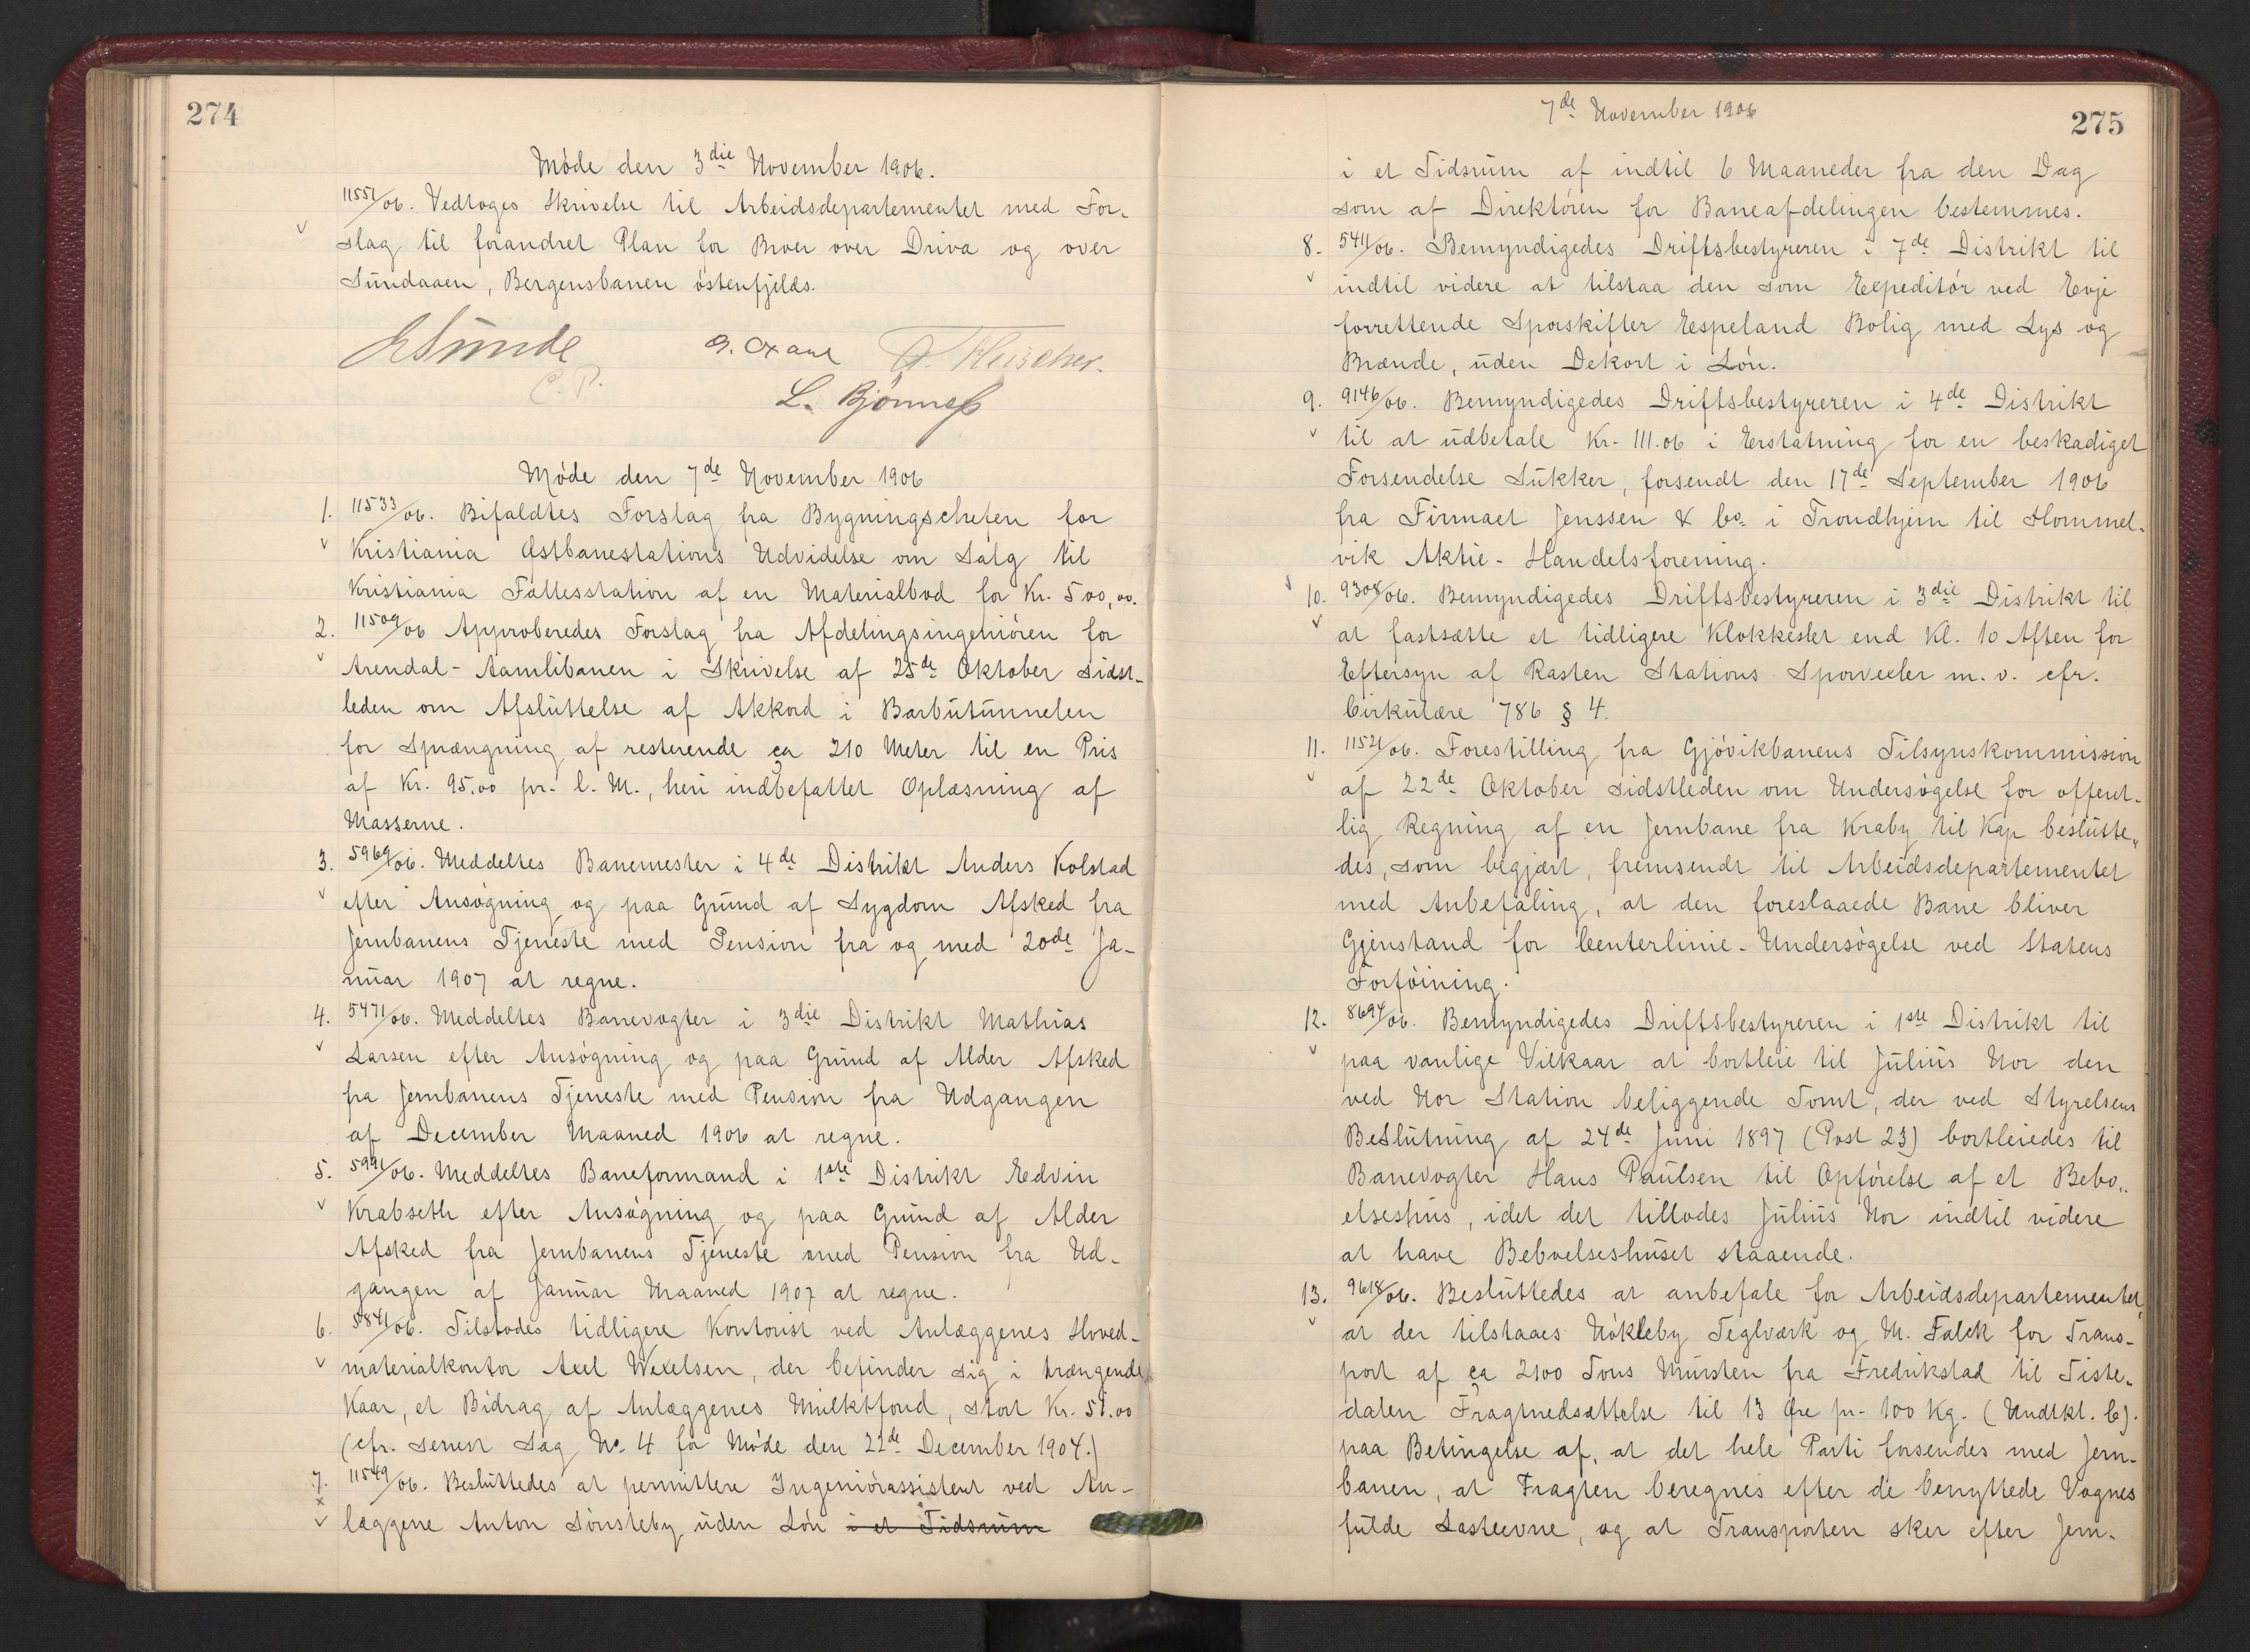 274
Møde den 3die November 1906.
11551/06. Vedtoges Skrivelse til Arbeidsdepartementet med For-
slag til forandret Plan for Broer over Driva og over
Sundaaen, Bergensbanen østenfjelds.
E Sunde
C. P.
A. Fleischer.
L. Bjønness
Møde den 7de November 1906
1. 11533/06. Bifaldtes Forslag fra Bygningschefen for
Kristiania Østbanestations Udvidelse om Salg til
Kristiania Fællesstation af en Materialbod for Kr. 500,00.
2. 11509/06 Approberedes Forslag fra Afdelingsingeniøren for
Arendal-Aamlibanen i Skrivelse af 25de Oktober sidst-
leden om Afsluttelse af Akkord i Barbutunnelen
for Sprængning af resterende ca 210 Meter til en Pris
af Kr. 95,00 pr. l. M., heri indbefattet Oplæsning af
Masserne.
3. 5969/06. Meddeltes Banemester i 4de Distrikt Anders Kolstad
efter Ansøgning og paa Grund af Sygdom Afsked fra
Jernbanens Tjeneste med Pension fra og med 20de Ja-
nuar 1907 at regne.
4. 5471/06. Meddeltes Banevogter i 3die Distrikt Mathias
Larsen efter Ansøgning og paa Grund af Alder Afsked
fra Jernbanens Tjeneste med Pension fra Udgangen
af December Maaned 1906 at regne.
5. 5991/06. Meddeltes Baneformand i 1ste Distrikt Edvin
Krabseth efter Ansøgning og paa Grund af Alder
Afsked fra Jernbanens Tjeneste med Pension fra Ud-
gangen af Januar Maaned 1907 at regne.
6. 5841/06. Tilstodes tidligere Kontorist ved Anlæggenes Hoved-
materialkontor Axel Wexelsen, der befinder sig i trængende
Kaar, et Bidrag af Anlæggenes Mulktfond, stort Kr. 50.00
(cfr. senest Sag No. 4 for Møde den 22de December 1904.)
7. 11549/06. Besluttedes at permittere Ingeniørassistent ved An-
læggene Anton Sønsteby uden Løn i et Tidsrum
7de November 1906
275
i et Tidsrum af indtil 6 Maaneder fra den Dag
som af Direktøren for Baneafdelingen bestemmes.
8. 5411/06. Bemyndigedes Driftsbestyreren i 7de Distrikt til
indtil videre at tilstaa den som Expeditør ved Evje
forrettende Sporskifter Espeland Bolig med Lys og
Brænde, uden Dekort i Løn.
9. 9146/06. Bemyndigedes Driftsbestyreren i 4de Distrikt
til at udbetale Kr. 111.06 i Erstatning for en beskadiget
Forsendelse Sukker, forsendt den 17de September 1906
fra Firmaet Jenssen & Co. i Trondhjem til Hommel-
vik Aktie-Handelsforening.
10. 9308/06. Bemyndigedes Driftsbestyreren i 3die Distrikt til
at fastsætte et tidligere Klokkeslet end Kl. 10 Aften for
Eftersyn af Rasten Stations Sporvexler m. v. cfr.
Cirkulære 786 § 4.
11. 11521/06. Forestilling fra Gjøvikbanens Tilsynskommission
af 22de Oktober sidstleden om Undersøgelse for offent-
lig Regning af en Jernbane fra Kraby til Kap beslutte-
des, som begjært, fremsendt til Arbeidsdepartementet
med Anbefaling, at den foreslaaede Bane bliver
Gjenstand for Centerlinie-Undersøgelse ved Statens
Forføining.
12. 8694/06. Bemyndigedes Driftsbestyreren i 1ste Distrikt til
paa vanlige Vilkaar at bortleie til Julius Nor den
ved Nor Station beliggende Tomt, der ved Styrelsens
Beslutning af 24de Juni 1897 (Post 23) bortleiedes til
Banevogter Hans Paulsen til Opførelse af et Bebo-
elseshus, idet det tillodes Julius Nor indtil videre
at have Beboelseshuset staaende.
13. 9618/06. Besluttedes at anbefale for Arbeidsdepartementet,
at der tilstaaes Nøkleby Teglværk og M. Falck for Trans-
port af ca 2100 Tons Mursten fra Fredrikstad til Tiste-
dalen Fragtnedsættelse til 13 Øre pr. 100 Kg. (Undtkl. C).
paa Betingelse af, at det hele Parti forsendes med Jern-
banen, at Fragten beregnes efter de benyttede Vognes
fulde Lasteevne, og at Transporten sker efter Jern-